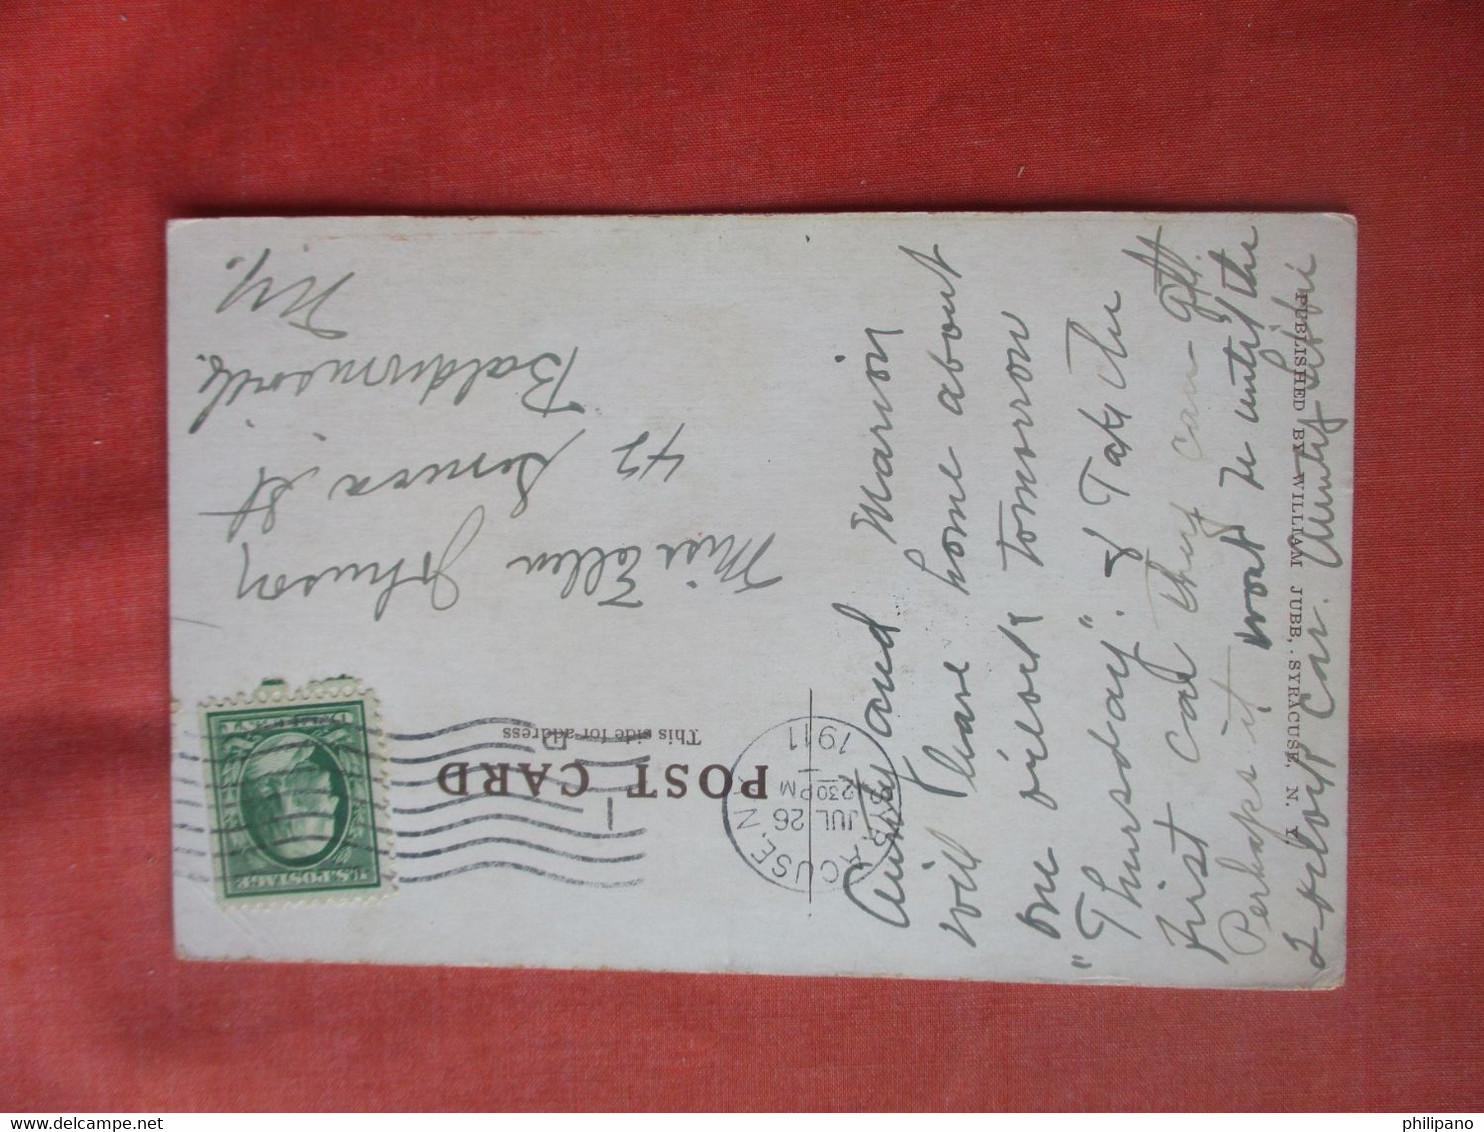 POST CARD
This side for address
U.S. POSTAGE
SYRACUSE, N.
JUL 26
230 PM
1911
Miss Ellen Johnson
42 Seneca St
Baldwinsville.
N.Y.
Aunty and Marion
will leave home about
one o'clock tomorrow
"Thursday". I Take the
first car they can get.
Perhaps it wont be until the
2 o'clock car. Aunty Libbie
PUBLISHED BY WILLIAM JUBB, SYRACUSE, N. Y.
philipano